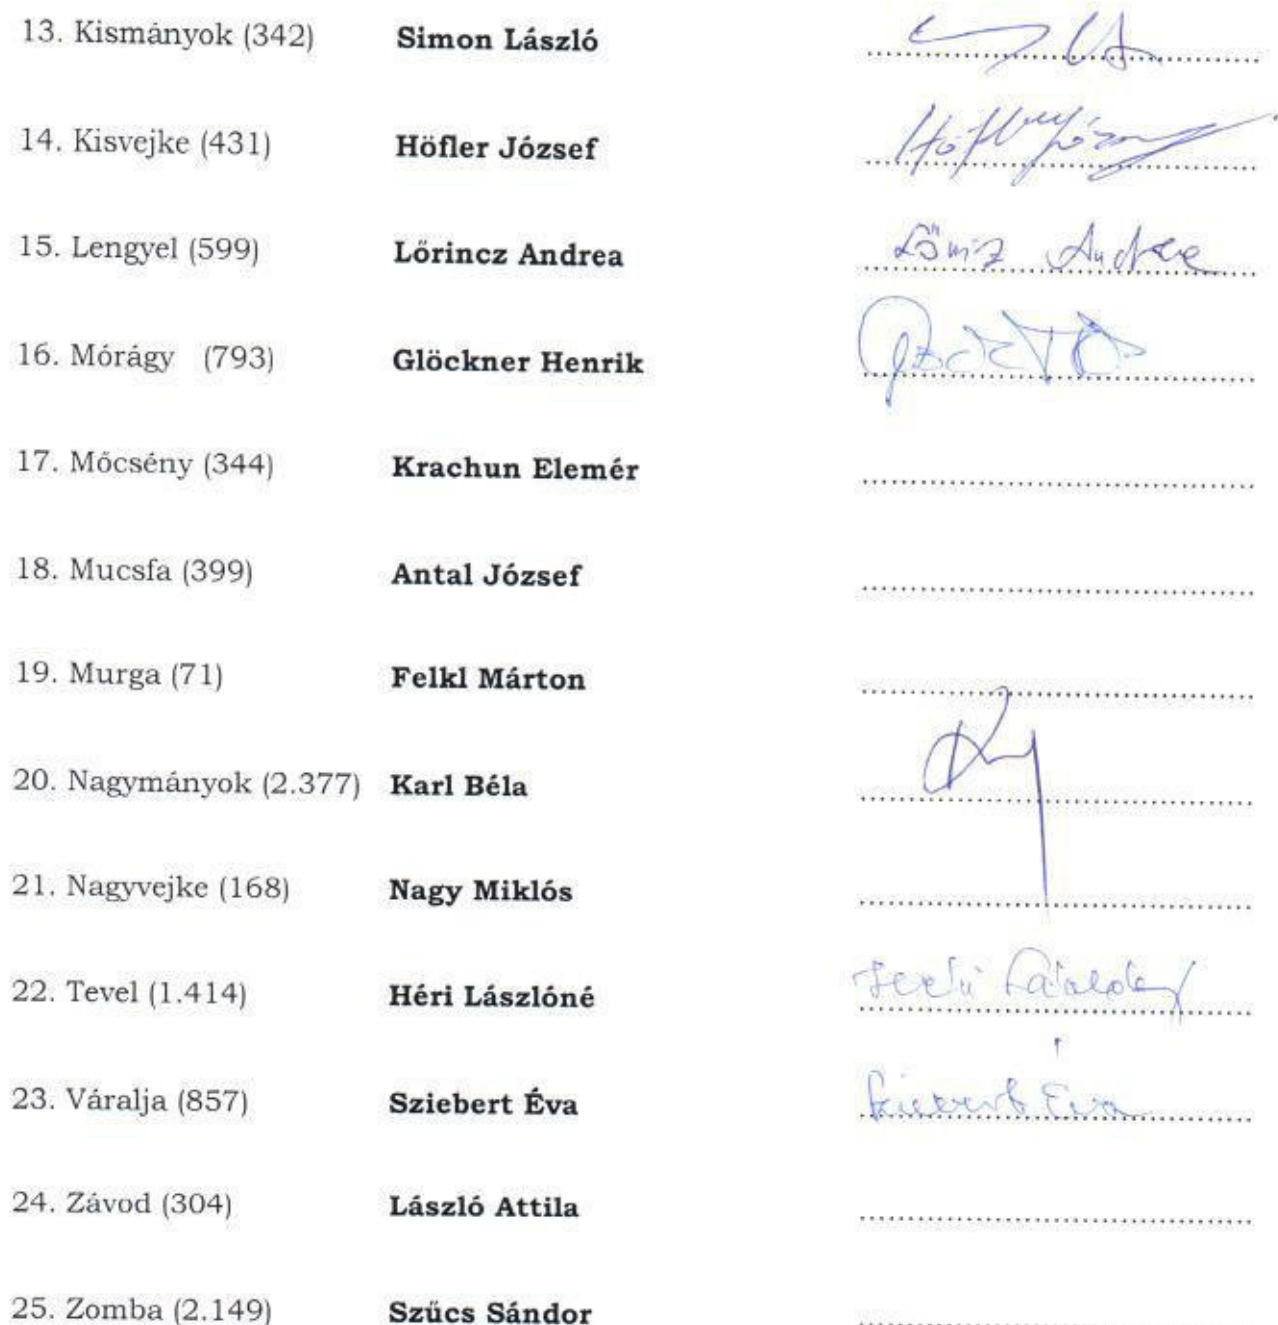 13. Kismányok (342) Simon László
14. Kisvejke (431) Höfler József Höfler József
15. Lengyel (599) Lőrincz Andrea Lőrincz Andrea
16. Mórágy (793) Glöckner Henrik
17. Mőcsény (344) Krachun Elemér
18. Mucsfa (399) Antal József
19. Murga (71) Felkl Márton
20. Nagymányok (2.377) Karl Béla
21. Nagyvejke (168) Nagy Miklós
22. Tevel (1.414) Héri Lászlóné
23. Váralja (857) Sziebert Éva Sziebert Éva
24. Závod (304) László Attila
25. Zomba (2.149) Szűcs Sándor